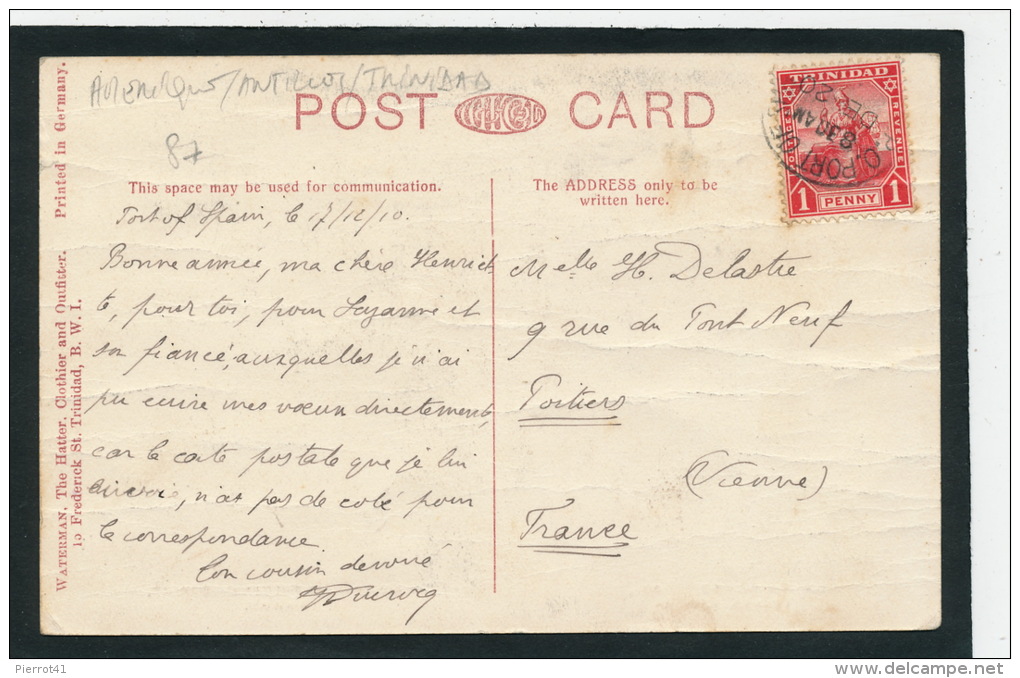 AMERIQUE/ANTILLES/TRINIDAD
POST CARD
87
This space may be used for communication.
The ADDRESS only to be
written here.
Port of Spain, le 17/12/10.
Bonne année, ma chère Henriet-
te, pour toi, pour Suzanne et
son fiancé, auxquelles je n'ai
pu écrire mes voeux directement,
car la carte postale que je lui
envoie, n'a pas de coté pour
la correspondance.
Ton cousin dévoué
Melle H. Delastre
9 rue du Pont Neuf
Poitiers
(Vienne)
France
TRINIDAD
POSTAGE
REVENUE
1 PENNY 1
PORT OF
8 AM
DE 20
WATERMAN, The Hatter, Clothier and Outfitter.
19 Frederick St. Trinidad, B. W. I.
Printed in Germany.
Pierrot41
delcampe.net